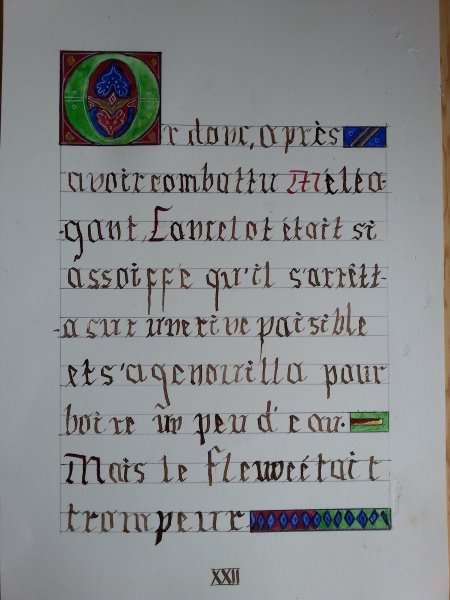 Or donc, après
avoir combattu Melea-
gant, Lancelot était si
assoiffé qu'il s'arrêtt-
a sur une rive paisible
et s'agenouilla pour
boire un peu d'eau.
Mais le fleuve était
trompeur
XXII